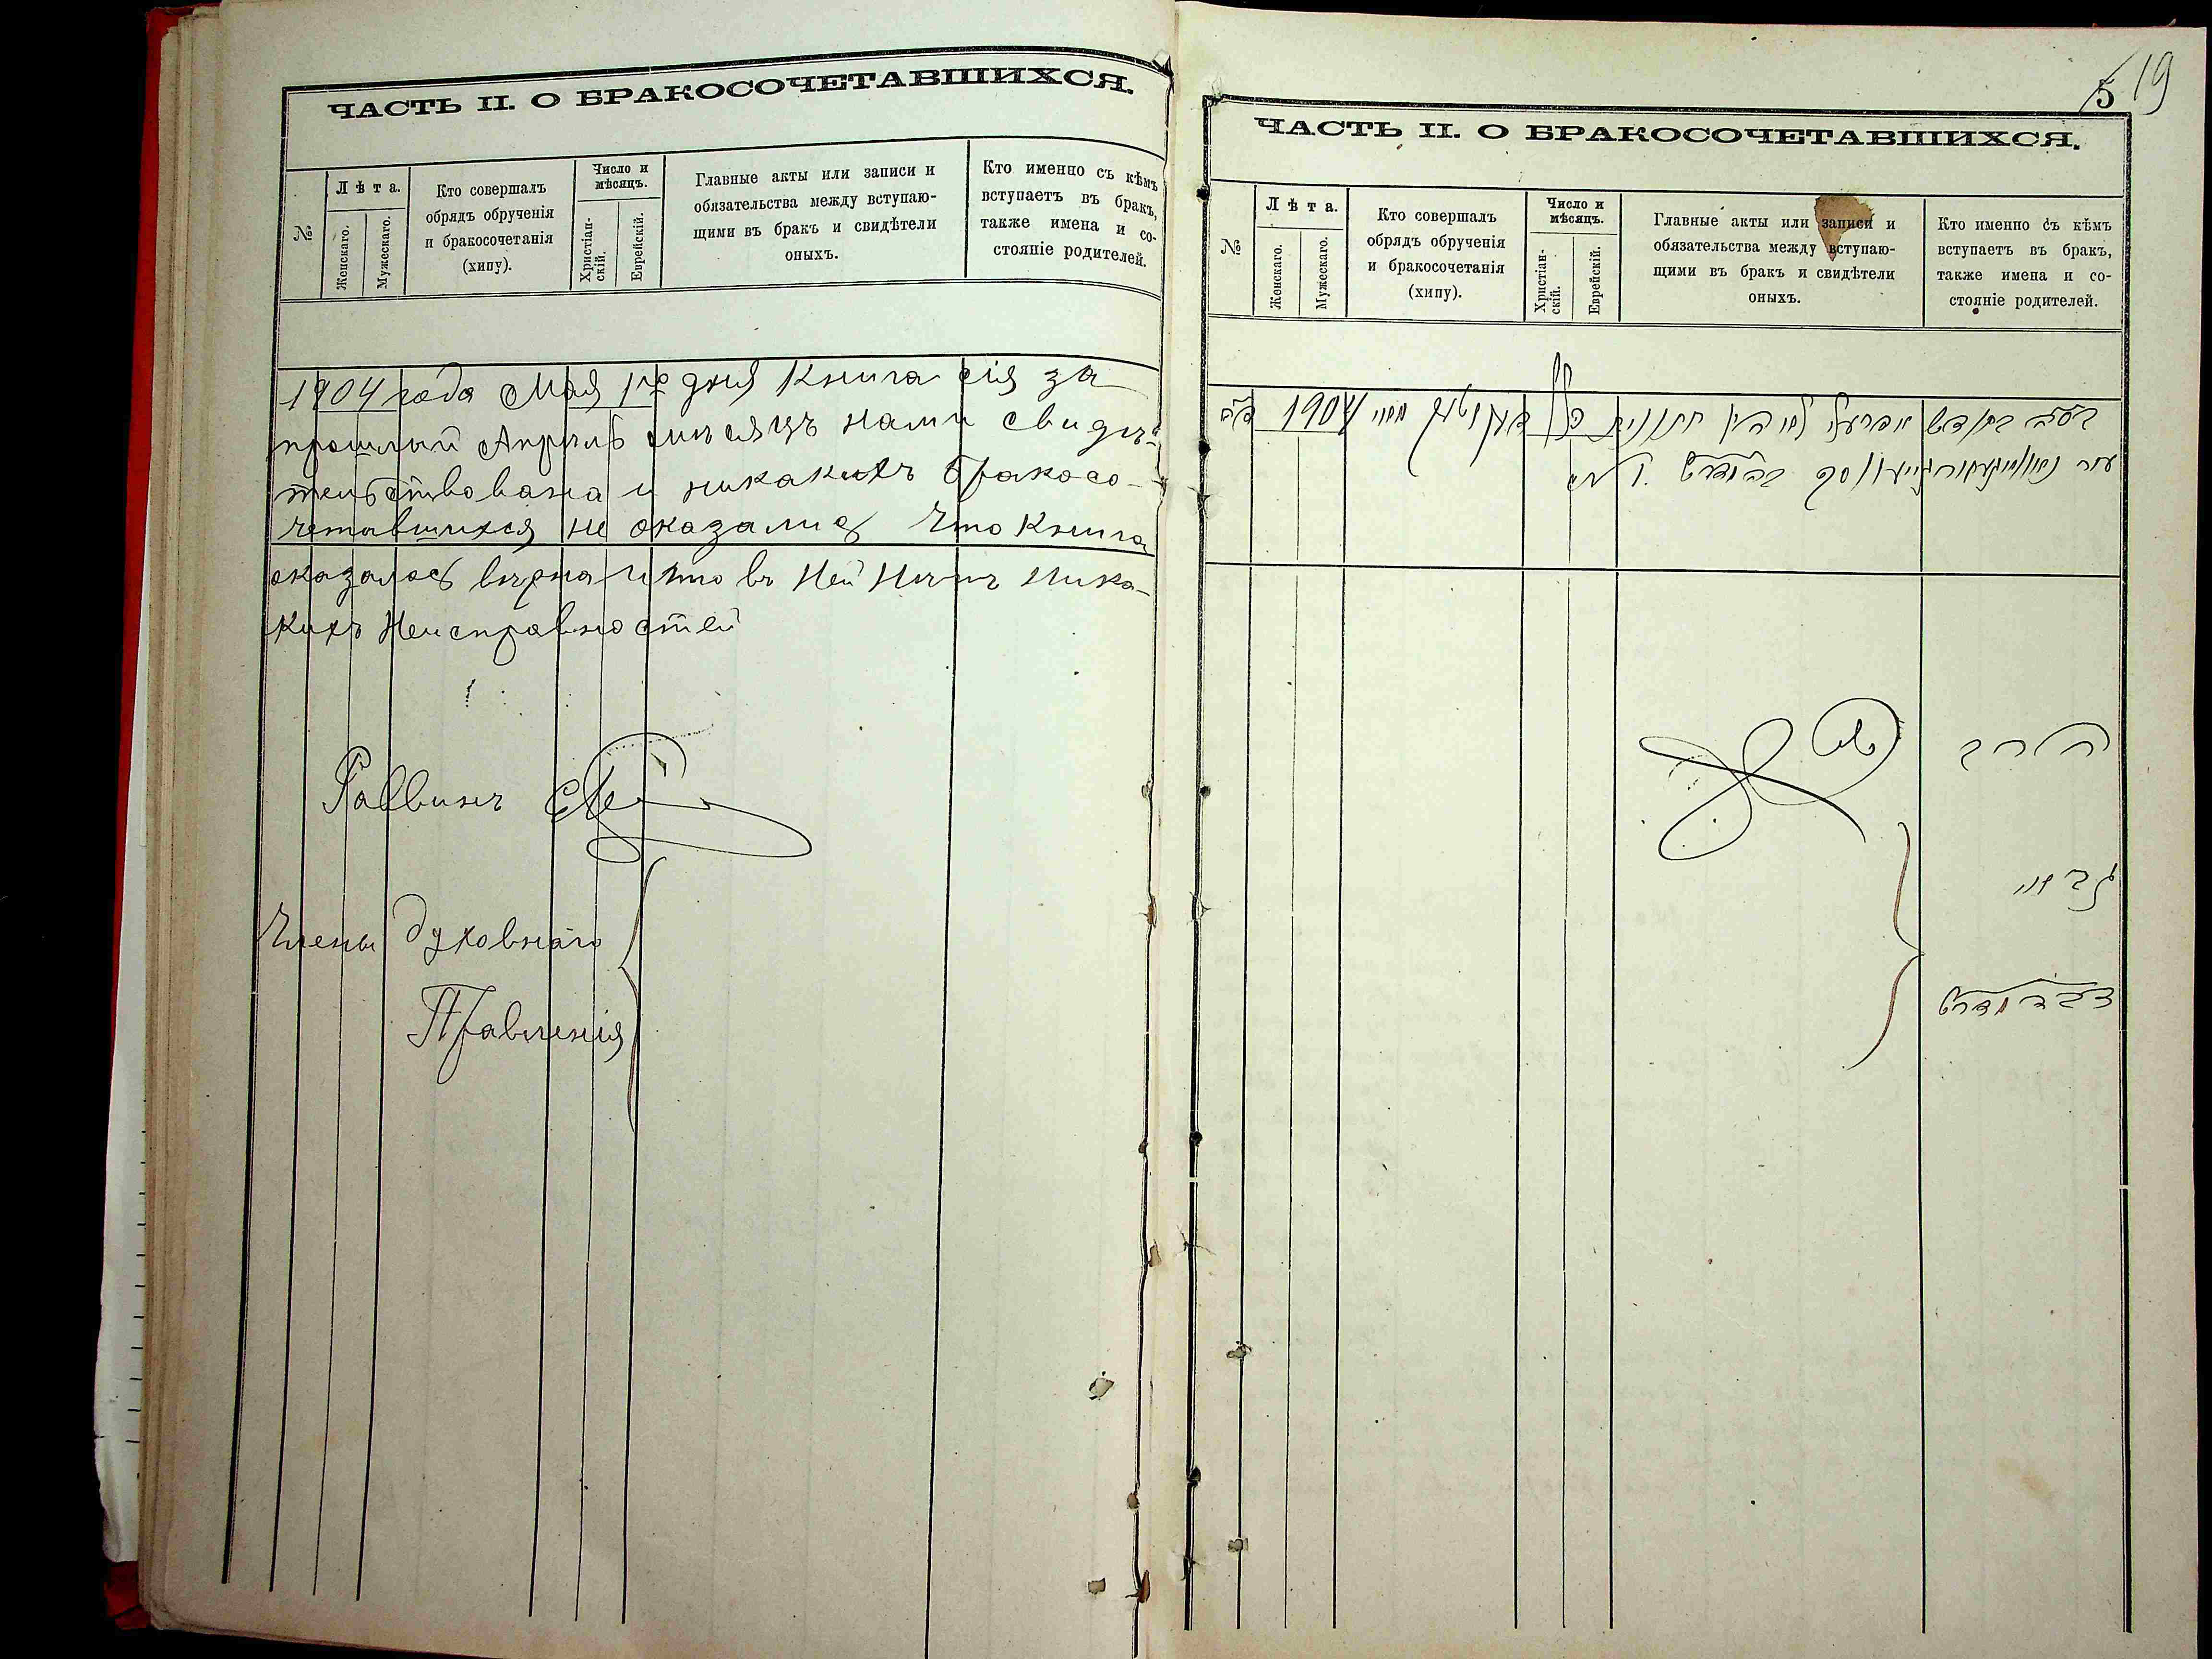 ЧАСТЬ II. О БРАКОСОЧЕТАВШИХСЯ.
№
Лѣта.
Женскаго.
Мужескаго.
Кто совершалъ
обрядъ обрученія
и бракосочетанія
(хипу).
Число и
мѣсяцъ.
Христіан-
скій.
Еврейскій.
Главные акты или записи и
обязательства между вступаю-
щими въ бракъ и свидѣтели
оныхъ.
Кто именно съ кѣмъ
вступаетъ въ бракъ,
также имена и со-
стояніе родителей.
1904 года Мая 1го дня Книга сія за
прошлый Апрѣль мѣсяцъ нами свидѣ-
тельствована и никакихъ бракосо-
четавшихся не оказались что Книга
оказалась вѣрна и что въ Ней Нѣтъ Ника-
кихъ Неисправностей
Раввинъ
Члены Духовнаго
Правленія
5 19
ЧАСТЬ II. О БРАКОСОЧЕТАВШИХСЯ.
№
Лѣта.
Женскаго.
Мужескаго.
Кто совершалъ
обрядъ обрученія
и бракосочетанія
(хипу).
Число и
мѣсяцъ.
Христіан-
скій.
Еврейскій.
Главные акты или записи и
обязательства между вступаю-
щими въ бракъ и свидѣтели
оныхъ.
Кто именно съ кѣмъ
вступаетъ въ бракъ,
также имена и со-
стояніе родителей.
1904
הרב